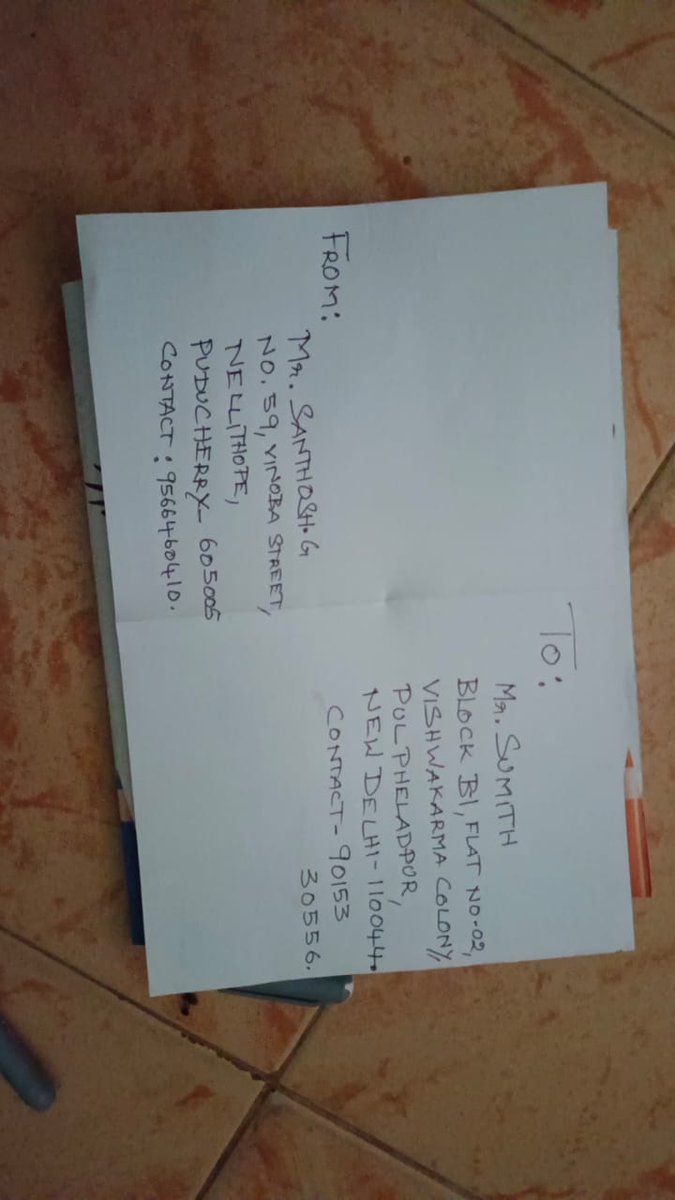 FROM:
Mr. SANTHOSH.G
NO.59, VINOBA STREET,
NELLITHOPE,
PUDUCHERRY- 605005
CONTACT: 9566460410.
TO:
Mr. SUMITH
BLOCK B1, FLAT NO.02,
VISHWAKARMA COLONY,
PUL PHELADPUR,
NEW DELHI-110044.
CONTACT- 90153
30556.